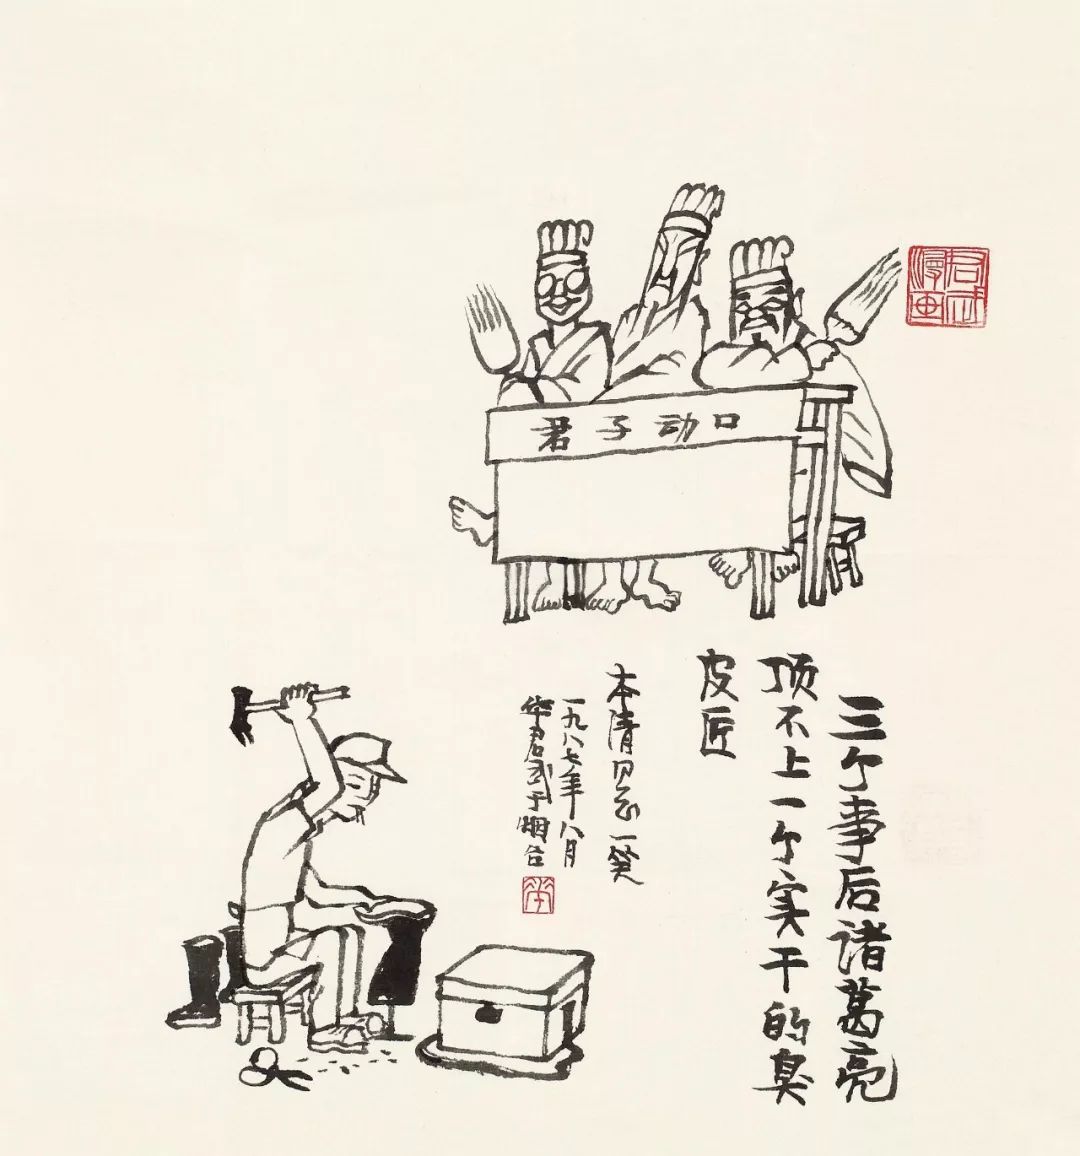 君子动口
三个事后诸葛亮
顶不上一个实干的臭
皮匠
本清同志一笑
一九八七年八月
华君武于烟台
君武漫画
华